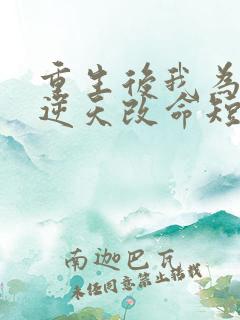 重生後我為
逆天改命短
南迦巴瓦
未经同意禁止转载